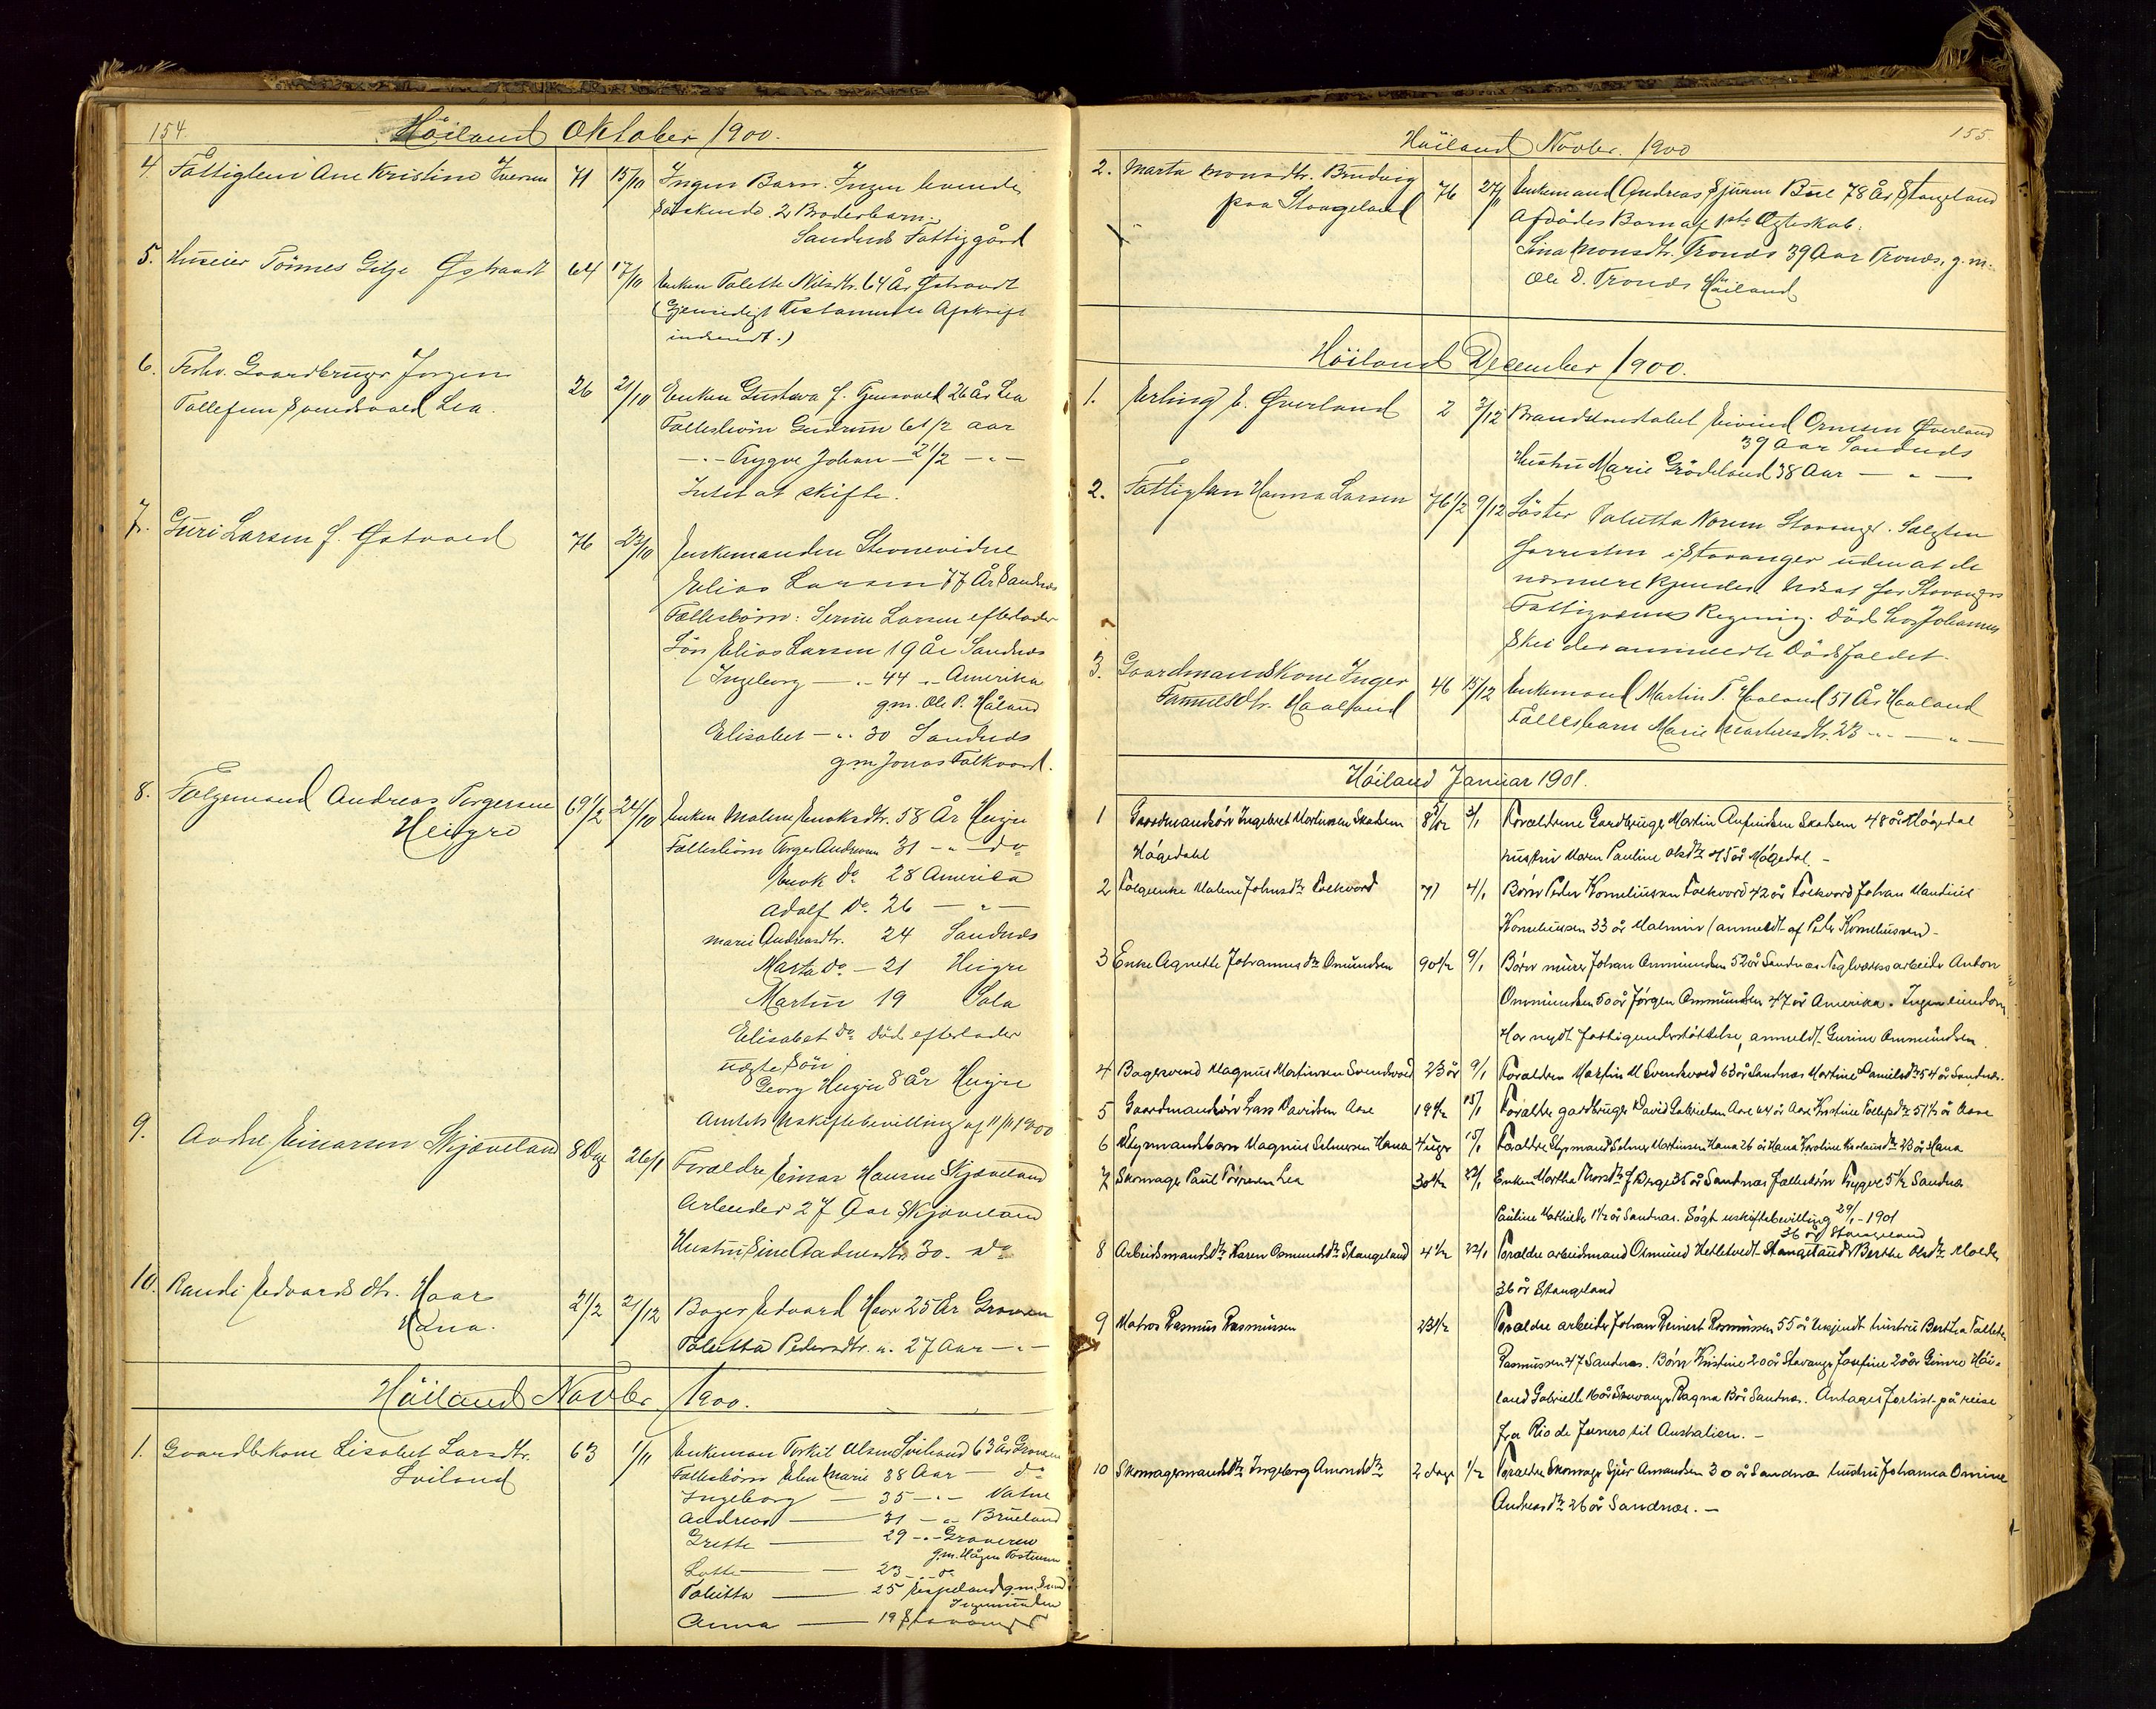 154.
Höiland Oktober 1900.
4. Fattiglem Ane Kristine Iversen 71 15/10 Ingen Barn. Ingen levende
Söskende. 2 Broderbarn.
Sandnes Fattiggård
5. Huseier Tönnes Gilje Østraadt 64 17/10 Enken Talette Nilsdtr. 64 År Østraadt
(Gjensidigt Testamente Afskrift
indsendt.)
6. Forhv. Gaardbruger Jörgen
Tollefsen Svendsvold Lea. 26 21/10 Enken Gustava f. Gjensvold 26 År Lea
Fællesbörn Gudrun 6 1/2 aar
—"— Trygve Johan — 2 1/2 —"—
Intet at skifte.
7. Guri Larsen f. Østvold 76 23/10 Enkemanden Stevnevidne
Elias Larsen 77 År Sandnes
Fællesbörn: Serine Larsen efterlader
Sön Elias Larsen 19 År Sandnes
Ingeborg — " 44 " Amerika
g.m. Ole P. Håland
Elisabet — " 30 Sandnes
g.m. Jonas Folkvord.
8. Følgemand Andreas Torgersen
Heigre 69 1/2 24/10 Enken Malene Enoksdtr. 58 År Heigre
Fællesbörn Torger Andreasen 31 —"— do
Enok do 28 Amerika
Adolf do. 26 —"—
Marie Andreasdtr. 24 Sandnes
Marta do — 21 Heigre
Martin 19 Sola
Elisabet do död efterlader
uægte sön
Georg Heigre 8 år Heigre
Amtets Uskiftebevilling af 11/11 1900
9. Andre Einarsen Skjæveland 8 Dag 26/1 Forældre Einar Hansen Skjæveland
Arbeider 27 Aar Skjæveland
Hustru Sine Aadnesdtr. 30. do
10. Randi Edvardsdtr. Haar
Hana. 2 1/2 21/12 Bager Edvard Haar 25 År Graveren
Talitta Pedersdtr. " 27 Aar —"—
Höiland Novbr. 1900.
1. Gaardbkone Lisabet Larsdtr.
Sviland 63 1/11 Enkeman Torkil Olsen Sviland 63 år Graveren
Fællesbörn Elen Marie 38 Aar — do
Ingeborg — 35 —"— Vatne
Andreas — 31 —"— Brueland
Grette — 29 —"— Graveren
g.m. Hågen Tostensen
Lotte — 23 —"— do
Talitta — 25 Espeland g.m.
Anna — 19 Stavanger
155
Höiland Novbr. 1900
2. Marta Monsdtr. Brudvig
paa Stangeland 76 27/11 Enkemand Andreas Sjursen Bue 78 År Stangeland
Afdödes Barn af 1ste Ægteskab:
Sina Monsdtr. Tronds 39 Aar Tronds, g.m.
Ole D. Tronds Höiland
Höiland December 1900.
1. Erling E. Øverland 2 3/12 Brandkonstabel Eivind Ormsen Øverland
39 Aar Sandnes
Hustru Marie Grödeland 38 Aar — " —
2. Fattiglem Hanna Larsen 76 1/2 9/12 Söster Talitta Norem Stavanger. Salgten
forresten i Stavanger uden at de
nærmere kjendes. Udsat for Stavangers
Fattigvæsens Regning. Död hos Johannes
Skei der anmeldte Dödsfaldet.
3. Gaardmandskone Inger
Samuelsdtr. Haaland 46 15/12 Enkemand Martin T. Haaland 51 År Haaland
Fællesbarn Marie Martinsdtr. 23 —"— —"—
Höiland Januar 1901.
1 Gaardmandsön Ingebret Martinsen Skadsem
Høgedahl 8 5/12 3/1 Forældrene Gardbruger Martin Anfindsen Skadsem 48 år Høgedal
hustru Maren Pauline Olsdtr 45 år Høgedal. —
2 Følgeenke Malene Johnsdtr Folkvord 71 4/1 Børn Peder Korneliussen Folkvord 42 år Folkvord Johan Mandius
Korneliusen 33 år Malmin (anmeldt af Peder Korneliussen) —
3 Enke Agnethe Johannesdtr Omundsen 90 1/2 9/1 Børn murer Johan Ommundsen 52 år Sandnæs Teglværksarbeider Anton
Ommundsen 50 år Jørgen Ommundsen 47 år Amerika. Ingen eiendom
Har nydt fattigunderstøttelse, anmeldt Gurine Ommundsen.
4 Bagersvend Magnus Martinsen Svendsvold 23 år 9/1 Forældre Martin M Svendsvold 63 år Sandnæs Martine Danielsdtr 54 år Sandnæs.
5 Gaardmandsön Lars Davidsen Aase 19 1/2 15/1 Forældre gardbruger David Gabrielsen Aase 64 år Aase Kristine Tollefsdtr 51 1/2 år Aase
6 Styrmandsbarn Magnus Selmersen Hana 4 uger 15/1 Forældre Styrmand Selmer Martinsen Hana 26 år Hana Karoline Karlsdtr 23 år Hana
7 Skomager Paul Tørresen Lea 30 1/2 22/1 Enken Martha Thorsdtr f Berge 35 år Sandnæs fællesbörn Trygve 5 1/2 Sandnæs
Pauline Mathilde 1 1/2 år Sandnæs. Søgt uskiftebevilling 29/1 - 1901
8 Arbeidsmandsdtr Karen Osmundsdtr Stangeland 4 1/2 22/1 Forældre arbeidsmand Osmund Hetletvedt 36 år Stangeland Berthe Olsdtr Molde
36 år Stangeland
9 Matros Rasmus Rasmussen 23 1/2 Forældre arbeider Johan Reinert Rasmussen 55 år Ukjendt hustru Bertha Tallette
Rasmussen 47 Sandnæs. Børn Kristine 20 år Stavanger Josefine 20 år Gimre Høi-
land Gabrielle 16 år Stavanger Ragna 13 år Sandnæs. Antages forlist på reise
fra Rio de Janero til Australien. —
10 Skomagermandsdtr Ingeborg Amundsdtr 2 dage 1/2 Forældre Skomager Sjur Amundsen 30 år Sandnæs hustru Johanna Omine
Andreasdtr 26 år Sandnæs. —